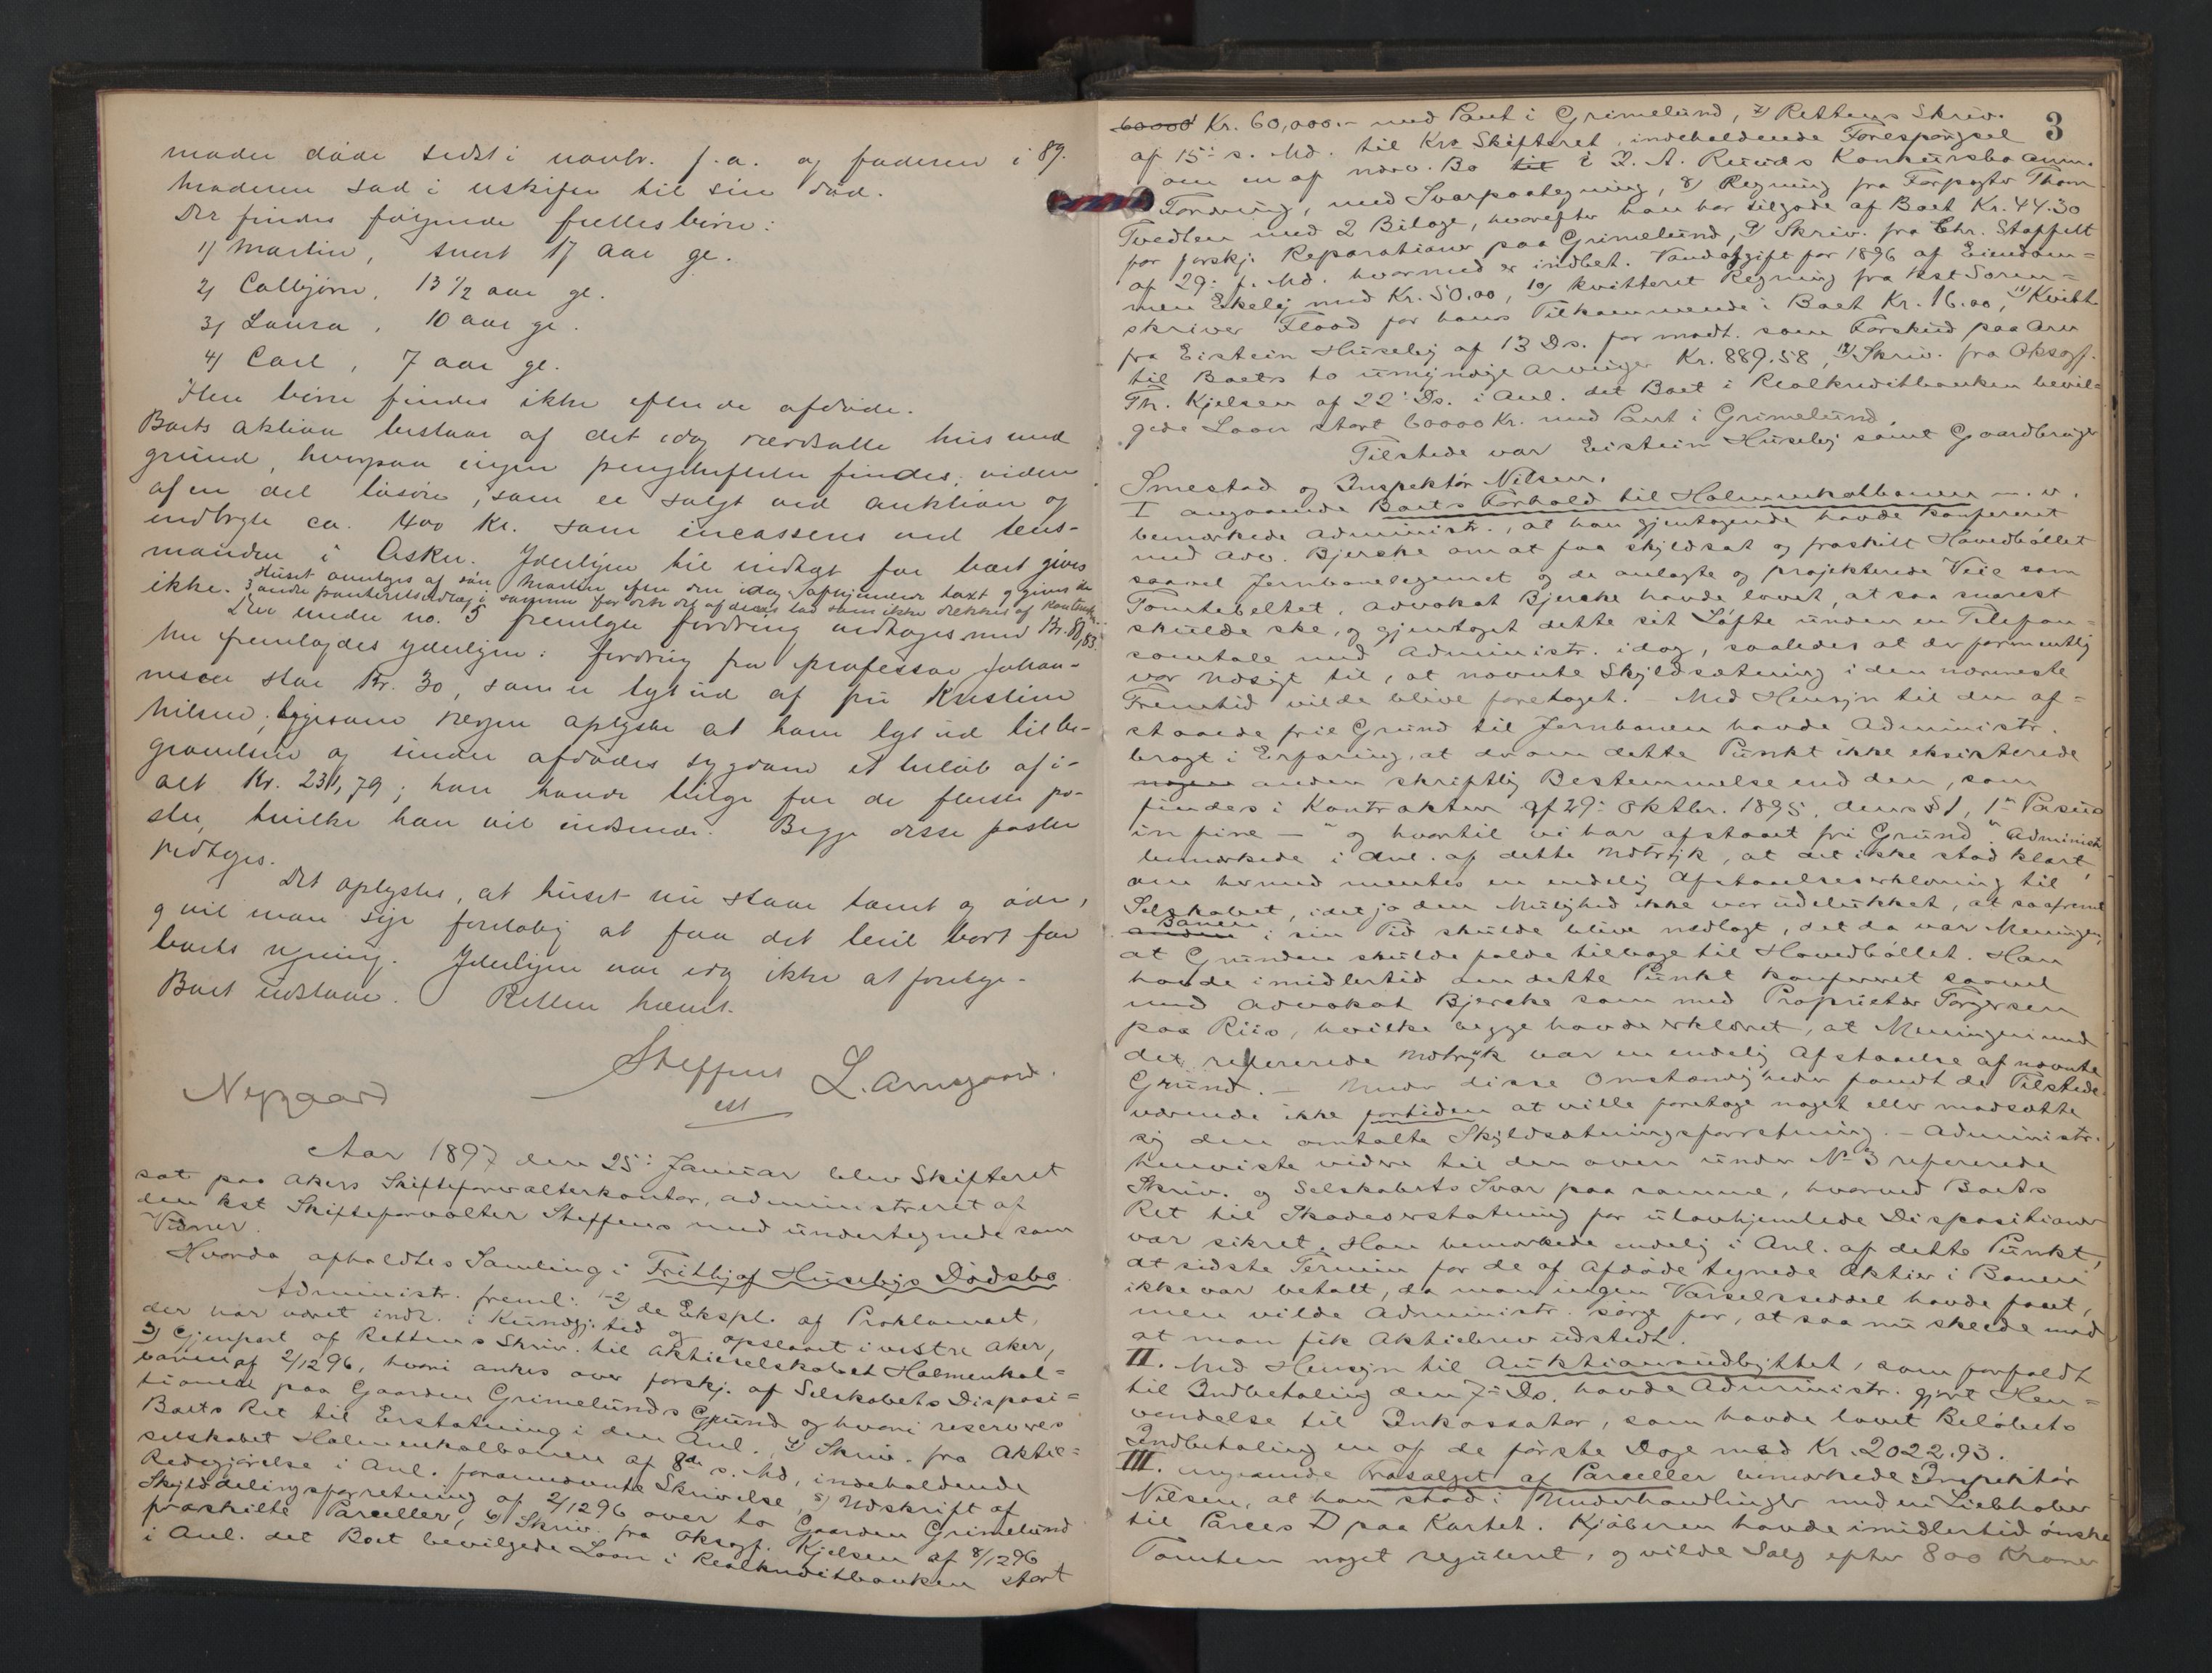 moder døde sidst i novbr. f. a. og faderen i 89.
Moderen sad i uskifte til sin død.
Der findes følgende fællesbørn:
1) Martin, snart 17 aar gl.
2) Colbjørn, 13 1/2 aar gl.
3) Laura, 10 aar gl.
4) Carl, 7 aar gl.
Flere børn findes ikke efter de afdøde.
Boets aktiva bestaar af det idag værdsatte hus med
grund, hvorpaa ingen pengeheftelser findes, videre
af en del løsøre, som er solgt ved auktion og
indbragte ca. 400 Kr. som incasseres ved lens-
manden i Asker. Yderligere til indtægt for boet gives
ikke. Huset overtages af søn Martin efter den idag afhjemlede taxt og gives de
3 andre panteretsudlæg i samme for
Den under no. 5 fremlagte fordring vedtages med Kr. 80,83.
Nu fremlagdes yderligere: fordring fra professor Johan-
nesen stor Kr. 30, som er lagt ud af frk Kristine
Nilsen; ligesom værgen oplyste at have lagt ud til be-
gravelsen og under afdødes sygdom et beløb af i-
alt Kr. 231,79; han havde bilage for de fleste po-
ster, hvilke han vil indsende. Begge disse poster
vedtages.
Det oplystes, at huset nu staar tomt og øde,
og vil man søge foreløbig at faa det leiet bort for
boets regning. Yderligere var idag ikke at foretage.
Boet udstaar. Retten hævet.
Steffens
cst
L. Arnegaard.
Nygaard
Aar 1897 den 25: Januar blev Skifteret
sat paa Akers Skifteforvalterkontor, administreret af
den kst Skifteforvalter Steffens med undertegnede som
Vidner.
Hvorda afholdtes Samling i Frithjof Huseby's Dødsbo.
Administr. freml: 1-2) de Ekspl. af Proklamaet,
der har været indr. i Kundgj.tid og opslaaet i vestre Aker,
3) Gjenpart af Rettens Skriv. til Aktieselskabet Holmenkol-
banen af 2/12 96, hvori ankes over forskj. af Selskabets Disposi-
tioner paa Gaarden Grimelunds Grund og hvori reserveres
Boets Ret til Erstatning i den Anl. 4) Skriv. fra Aktie-
selskabet Holmenkolbanen af 8de s. Md, indeholdende
Redegjørelse i Anl. forannævnte Skrivelse, 5) Udskrift af
Skylddelingsforretning af 2/12 96 over to Gaarden Grimelund
fraskilte Parceller, 6) Skriv. fra Oksagf. Kjelsen af 8/12 96
i Anl. det Boet bevilgede Laan i Realkreditbanken stort
3
60000 Kr. 60,000.- med Pant i Grimelund, 7) Rettens Skriv.
af 15: s. Md. til Kra Skifteret, indeholdende Forespørgsel
om en af nærv. Bo til i P. A. Ruuds Konkursbo anm.
Fordring, med Svarpaategning, 8) Regning fra Forpagter Thom
Tvedten med 2 Bilage, hvorefter han har tilgode af Boet Kr. 44.30
for forskj. Reparationer paa Grimelund, 9) Skriv. fra Chr. Staffelt
af 29: f. Md. hvormed er indbet. Vandafgift for 1896 af Eiendom-
men Ekely med Kr. 50.00, 10) kvitteret Regning fra kst Soren-
skriver Flood for hans Tilkommende i Boet Kr. 16.00, 11) Kvitt.
fra Eistein Huseby af 13 Ds. for modt. som Forskud paa Arv
til Boets to umyndige Arvinger Kr. 889.58, 12) Skriv. fra Oksagf.
Th. Kjelsen af 22: Ds. i Anl. det Boet i Realkreditbanken bevil-
gede Laan stort 60000 Kr. med Pant i Grimelund.
Tilstede var Eistein Huseby samt Gaardbruger
Smestad og Inspektør Nilsen.
I angaaende Boets Forhold til Holmenkolbanen m. v.
bemærkede Administr., at han gjentagende havde konfereret
med Adv. Bjerke om at faa skyldsat og fraskilt Hovedbøllet
saavel Jernbanelegemet og de anlagte og projekterede Veie som
Tomtebeltet. Advokat Bjerke havde lovet, at saa snarest
skulde ske, og gjentaget dette sit Løfte under en Telefon-
samtale med Administr. idag, saaledes at der formentlig
var Udsigt til, at nævnte Skyldsætning i den nærmeste
Fremtid vilde blive foretaget. – Med Hensyn til den af-
staaede frie Grund til Jernbanen havde Administr.
bragt i Erfaring, at der om dette Punkt ikke eksisterede
nogen anden skriftlig Bestemmelse end den, som
findes i Kontrakten af 29: Oktbr. 1895, dens § 1, 1ste Passus
in fine – "og hvortil vi har afstaaet fri Grund." Administr.
bemærkede i Anl. af dette Udtryk, at det ikke stod klart,
om hermed mentes en endelig Afstaaelseserklæring til
Selskabet, idet jo den Mulighed ikke var udelukket, at saafremt
anden Banen i sin Tid skulde blive nedlagt, det da var Meningen,
at Grunden skulde falde tilbage til Hovedbøllet. Han
havde imidlertid om dette Punkt konfereret saavel
med Advokat Bjerke som med Proprietær Torgersen
paa Riis, hvilke begge havde erklæret, at Meningen med
det refererede Udtryk var en endelig Afstaaelse af nævnte
Grund. – Under disse Omstændigheder fandt de Tilstede-
værende ikke fortiden at ville foretage noget eller modsætte
sig den omtalte Skyldsætningsforretning. – Administr.
henviste videre til den oven under No 3 refererede
Skriv. og Selskabets Svar paa samme, hvorved Boets
Ret til Skadeserstatning for uhjemlede Dispositioner
var sikret. Han bemærkede endelig i Anl. af dette Punkt,
at sidste Termin for de af Afdøde tegnede Aktier i Banen
ikke var betalt, da man ingen Varselsseddel havde faaet,
men vilde Administr. sørge for, at saa nu skeede mod
at man fik Aktiebrev udstedt.
II. Med Hensyn til Auktionsudbyttet, som forfaldt
til Indbetaling den 7: Ds. havde Administr. gjort Hen-
vendelse til Inkassator, som havde lovet Beløbets
Indbetaling en af de første Dage med Kr. 2022.93.
III. angaaende Frasalget af Parceller bemærkede Inspektør
Nilsen, at han stod i Underhandlinger med en Liebhaber
til Parcel D paa Kartet. Kjøberen havde imidlertid ønske
Tomten noget reguleret, og vilde Salg efter 800 Kroner